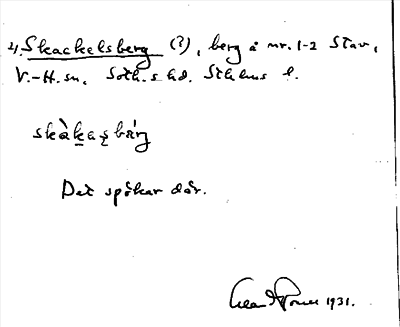 4. Skackelsberg (?), berg å nr. 1-2 Stav,
V.-H. sn. Soth.s hd. Sthlms l.
skàkasbärj
Det spökar där.
1931.